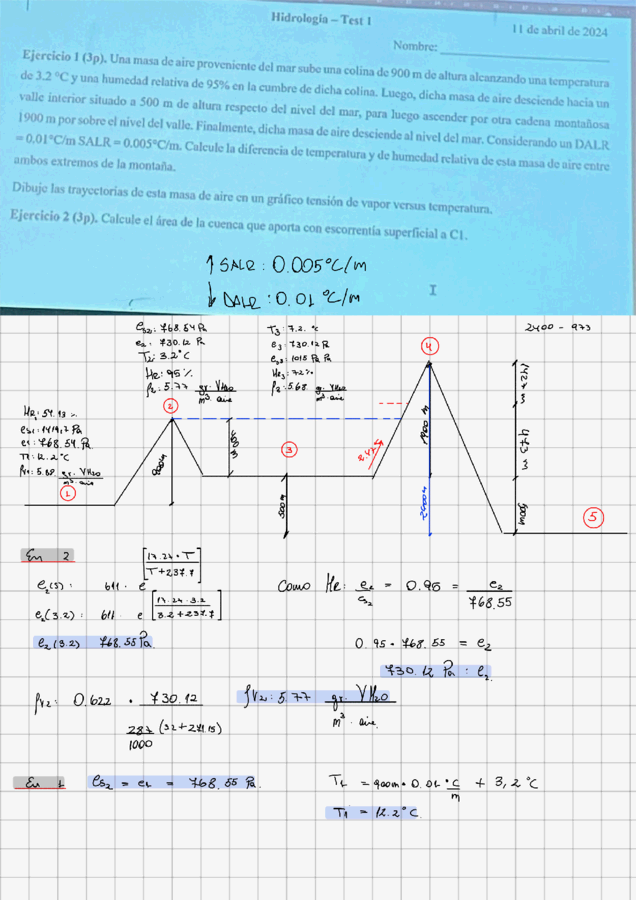 Hidrología – Test 1
11 de abril de 2024
Nombre:
Ejercicio 1 (3p). Una masa de aire proveniente del mar sube una colina de 900 m de altura alcanzando una temperatura
de 3.2 °C y una humedad relativa de 95% en la cumbre de dicha colina. Luego, dicha masa de aire desciende hacia un
valle interior situado a 500 m de altura respecto del nivel del mar, para luego ascender por otra cadena montañosa
1900 m por sobre el nivel del valle. Finalmente, dicha masa de aire desciende al nivel del mar. Considerando un DALR
= 0,01°C/m SALR = 0.005°C/m. Calcule la diferencia de temperatura y de humedad relativa de esta masa de aire entre
ambos extremos de la montaña.
Dibuje las trayectorias de esta masa de aire en un gráfico tensión de vapor versus temperatura.
Ejercicio 2 (3p). Calcule el área de la cuenca que aporta con escorrentía superficial a C1.
↑ SALR : 0.005°C/m
↓ DALR : 0.01 °C/m
es2: 768.54 Pa
e2: 730.12 Pa
T2: 3.2°C
HR: 95%
ρ2: 5.77 gr. VH2O
m³ aire
T3: 7.2 °C
e3: 730.12 Pa
es3: 1015 Pa
HR3: 72%
ρ2: 5.68 gr. VH2O
m³ aire
2400 - 973
4
1427 m
HR: 54.13 %
es1: 1419,7 Pa
e1: 768.54 Pa
T1: 12.2°C
ρv1: 5.88 gr. VH2O
m³ aire
1
2
900m
3
500m
1900m
2400m
473 m
500m
5
En 2
e2(s): 611 · e [17.24 · T / T+237.7]
e2(3.2): 611 · e [17.24 · 3.2 / 3.2+237.7]
e2(3.2) 768.55 Pa.
Como HR: e2 / es2 = 0.95 = e2 / 768.55
0.95 · 768.55 = e2
730.12 Pa : e2
ρv2: 0.622 · 730.12
287/1000 (3.2+271.15)
ρv2: 5.77 gr. VH2O
m³ · aire
En 1 es2 = e1 = 768.55 Pa.
T1 = 900m · 0.01 °C/m + 3,2°C
T1 = 12.2°C